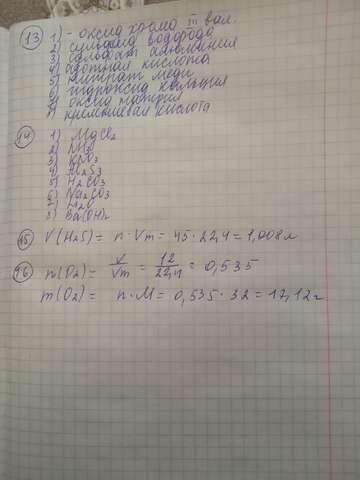 13) 1) - оксид хрома III вал.
2) сульфид водорода
3) сульфат алюминия
4) азотная кислота
5) нитрат меди
6) гидроксид кальция
7) оксид натрия
8) кремниевая кислота
14) 1) MgCl₂
2) NH₃
3) KNO₃
4) Al₂S₃
5) H₂CO₃
6) Na₂CO₃
7) H₂O
8) Ba(OH)₂
15) V(H₂S) = n·Vm = 45·22,4 = 1,008 л
16) n(O₂) = V/Vm = 12/22,4 = 0,535
m(O₂) = n·M = 0,535·32 = 17,12 г